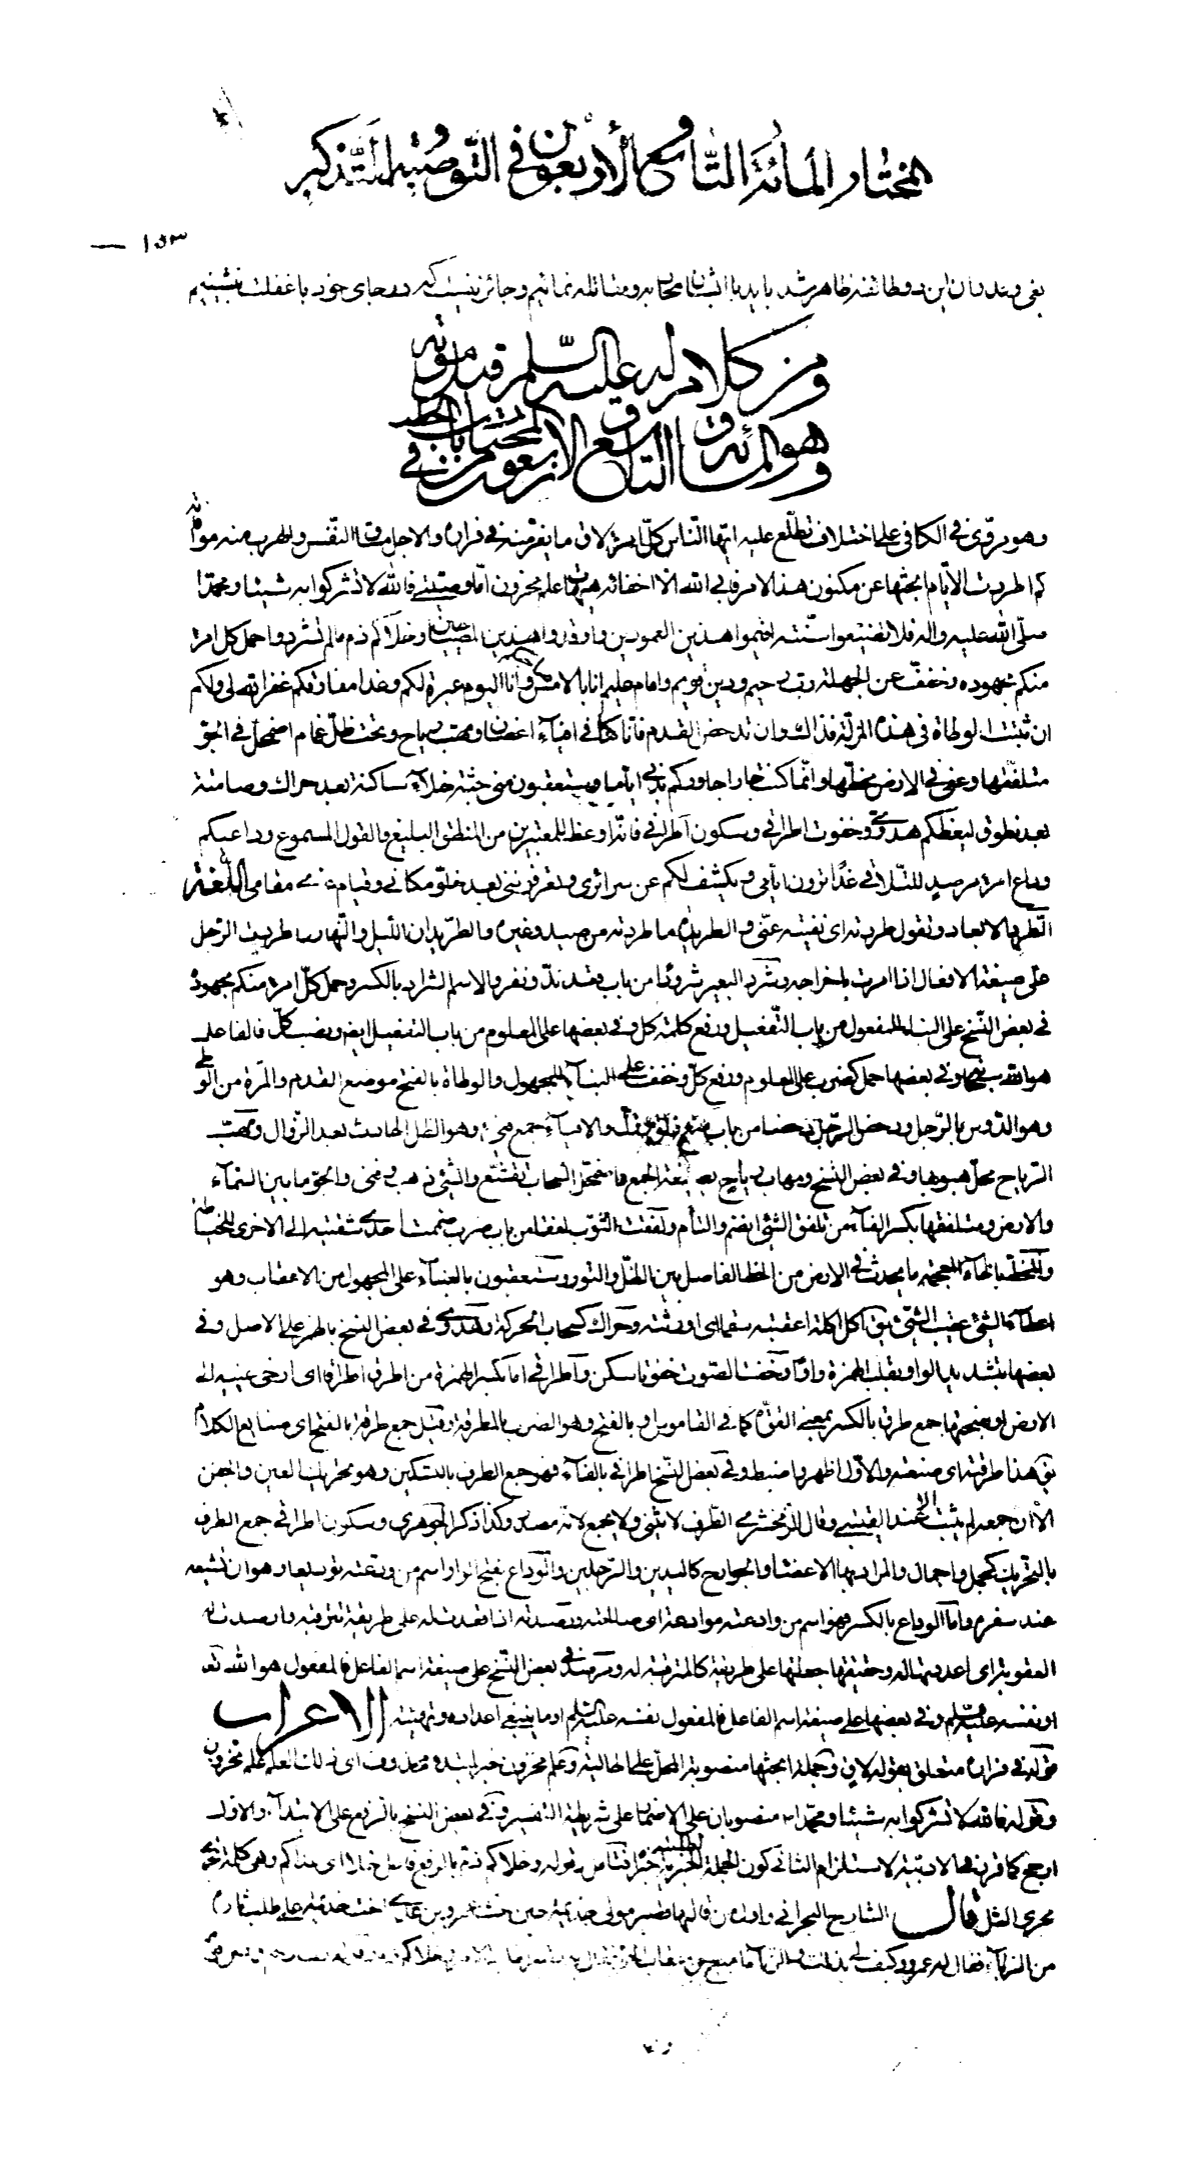 المختار المائة التاسع والأربعون في التوصية والتذكير
١٥٣ —
بغی وعدوان این دو طائفه ظاهر شد باید با ایشان محاربه ومقاتله نمائیم وجائز نیست که در جای خود با غفلت بنشینیم
ومن كلام له عليه السلام قبل موته
وهو المائة والتاسع والاربعون من المختار في باب الخطب
وهو مروى في الكافي على اختلاف تطلع عليه ايها الناس كل امرء لاق ما يفر منه في فراره والاجل مساق النفس والهرب منه موافاته
كم اطردت الايام ابحثها عن مكنون هذا الامر فابى الله الا اخفائه هيهات علم مخزون اما وصيتي فالله لا تشركوا به شيئا ومحمدا
صلى الله عليه واله فلا تضيعوا سنته اقيموا هذين العمودين واوقدوا هذين المصباحين وخلاكم ذم ما لم تشردوا حمل كل امرء
منكم مجهوده وخفف عن الجهلة رب رحيم ودين قويم وامام عليم انا بالامس صاحبكم وانا اليوم عبرة لكم وغدا مفارقكم غفر الله لي ولكم
ان ثبتت الوطأة في هذه المزلة فذاك وان تدحض القدم فانا كنا في افياء اغصان ومهب رياح وتحت ظل غمام اضمحل في الجو
متلفقها وعفى في الارض مخطها وانما كنت جارا جاوركم بدني اياما وستعقبون مني جثة خلاء ساكنة بعد حراك وصامتة
بعد نطوق ليعظكم هدوي وخفوت اطراقي وسكون اطرافي فانه اوعظ للمعتبرين من المنطق البليغ والقول المسموع وداعيكم
وداع امرء مرصد للتلاقي غدا ترون ايامي ويكشف لكم عن سرائري وتعرفونني بعد خلو مكاني وقيام غيري مقامي اللغة
الطرد الابعاد وتقول طردته اى نفيته عني والطريدة ما طردته من صيد وغيره والطريدان الليل والنهار واطريف الرجل
على صيغة الافعال اذا امرت باخراجه وشرد البعير شرودا من باب قعد ند ونفر والاسم الشراد بالكسر وحمل كل امرء منكم مجهوده
في بعض النسخ على البناء للمفعول من باب التفعيل ورفع كلمة كل وفي بعضها على المعلوم من باب التفعيل ايضا ونصب كل فالفاعل
هو الله سبحانه وفي بعضها حمل كضرب على المعلوم ورفع كل وخفف على البناء للمجهول والوطأة بالفتح موضع القدم والمرة من الوطى
وهو الدوس بالرجل ودحض الرجل دحضا من باب منع زلق والافياء جمع فيء وهو الظل الحادث بعد الزوال ومهب
الرياح محل هبوبها وفي بعض النسخ ومهاب رياح بصيغة الجمع واضمحل السحاب تقشع والشيء ذهب وفنى والجو ما بين السماء
والارض ومتلفقها بكسر الفاء من تلفق الشيء انضم والتأم ولفقت الثوب لفقا من باب ضرب ضممت احدى شقتيه الى الاخرى للخياطة
والمخط بالخاء المعجمة ما يحدث في الارض من الخط الفاصل بين الظل والنور وستعقبون بالبناء على المجهول من الاعقاب وهو
اعطاء الشيء عقيب الشيء يق اكل اكلة اعقبته سقما اى اورثته وحراك كسحاب الحركة وهدوى في بعض النسخ بالهمز على الاصل وفي
بعضها بتشديد الواو بقلب الهمزة واوا وخفت الصوت خفوتا سكن واطراقى اما بكسر الهمزة من اطرق اطراقا اى ارخى عينيه الى
الارض او بفتحها جمع طرق بالكسر بمعنى القوة كما في القاموس او بالفتح وهو الضرب بالمطرقة وقيل جمع طرقة بالفتح اى صنايع الكلام
يق هذا طرقته اى صنعته والاول اظهر واضبط وفي بعض النسخ اطرافى بالفاء فهو جمع الطرف بالتسكين وهو تحريك العين والجفن
الا ان جمعه لم يثبت الا عند القتيبي وقال الزمخشري الطرف لا يثنى ولا يجمع لانه مصدر وكذا ذكر الجوهري وسكون اطرافي جمع الطرف
بالتحريك كجمل واجمال والمراد بها الاعضاء والجوارح كاليدين والرجلين والوداع بفتح الواو اسم من ودعته توديعا وهو ان تشيعه
عند سفره واما الوداع بالكسر فهو اسم من وادعته موادعة اى صالحته ورصدته اذا قعدت له على طريقه تترقبه وارصدت له
العقوبة اى اعددتها له وحقيقتها جعلتها على طريقه كالمترقبة له ومرصد في بعض النسخ على صيغة اسم الفاعل فالمفعول هو الله تعـ
او نفسه عليه السلم وفي بعضها على صيغة اسم الفاعل فالمفعول نفسه عليه السلم او ما ينبغى اعداده وتهيئته الاعراب
قوله في فراره متعلق بقوله لاق وجملة ابحثها منصوبة المحل على الحالية وعلم مخزون خبر لمبتدء محذوف اى ذلك العلم علم مخزون
وقوله فالله لا تشركوا به شيئا ومحمدا منصوبان على الاضمار على شريطة التفسير وفي بعض النسخ بالرفع على الابتداء والاول
ارجح كما قرر في الادبية لاستلزام الثاني كون الجملة الطلبية خبرا فتامل وقوله وخلاكم ذم بالرفع فاعل خلا اى عداكم وهي كلمة تجرى
مجرى المثل قال الشارح البحراني واول من قالها قصير مولى جذيمة حين حث عمرو بن عدى اخت جذيمة على طلب ثاره
من الزباء فقال له عمرو وكيف لي بذلك والزباء امنع من عقاب الجو فقال